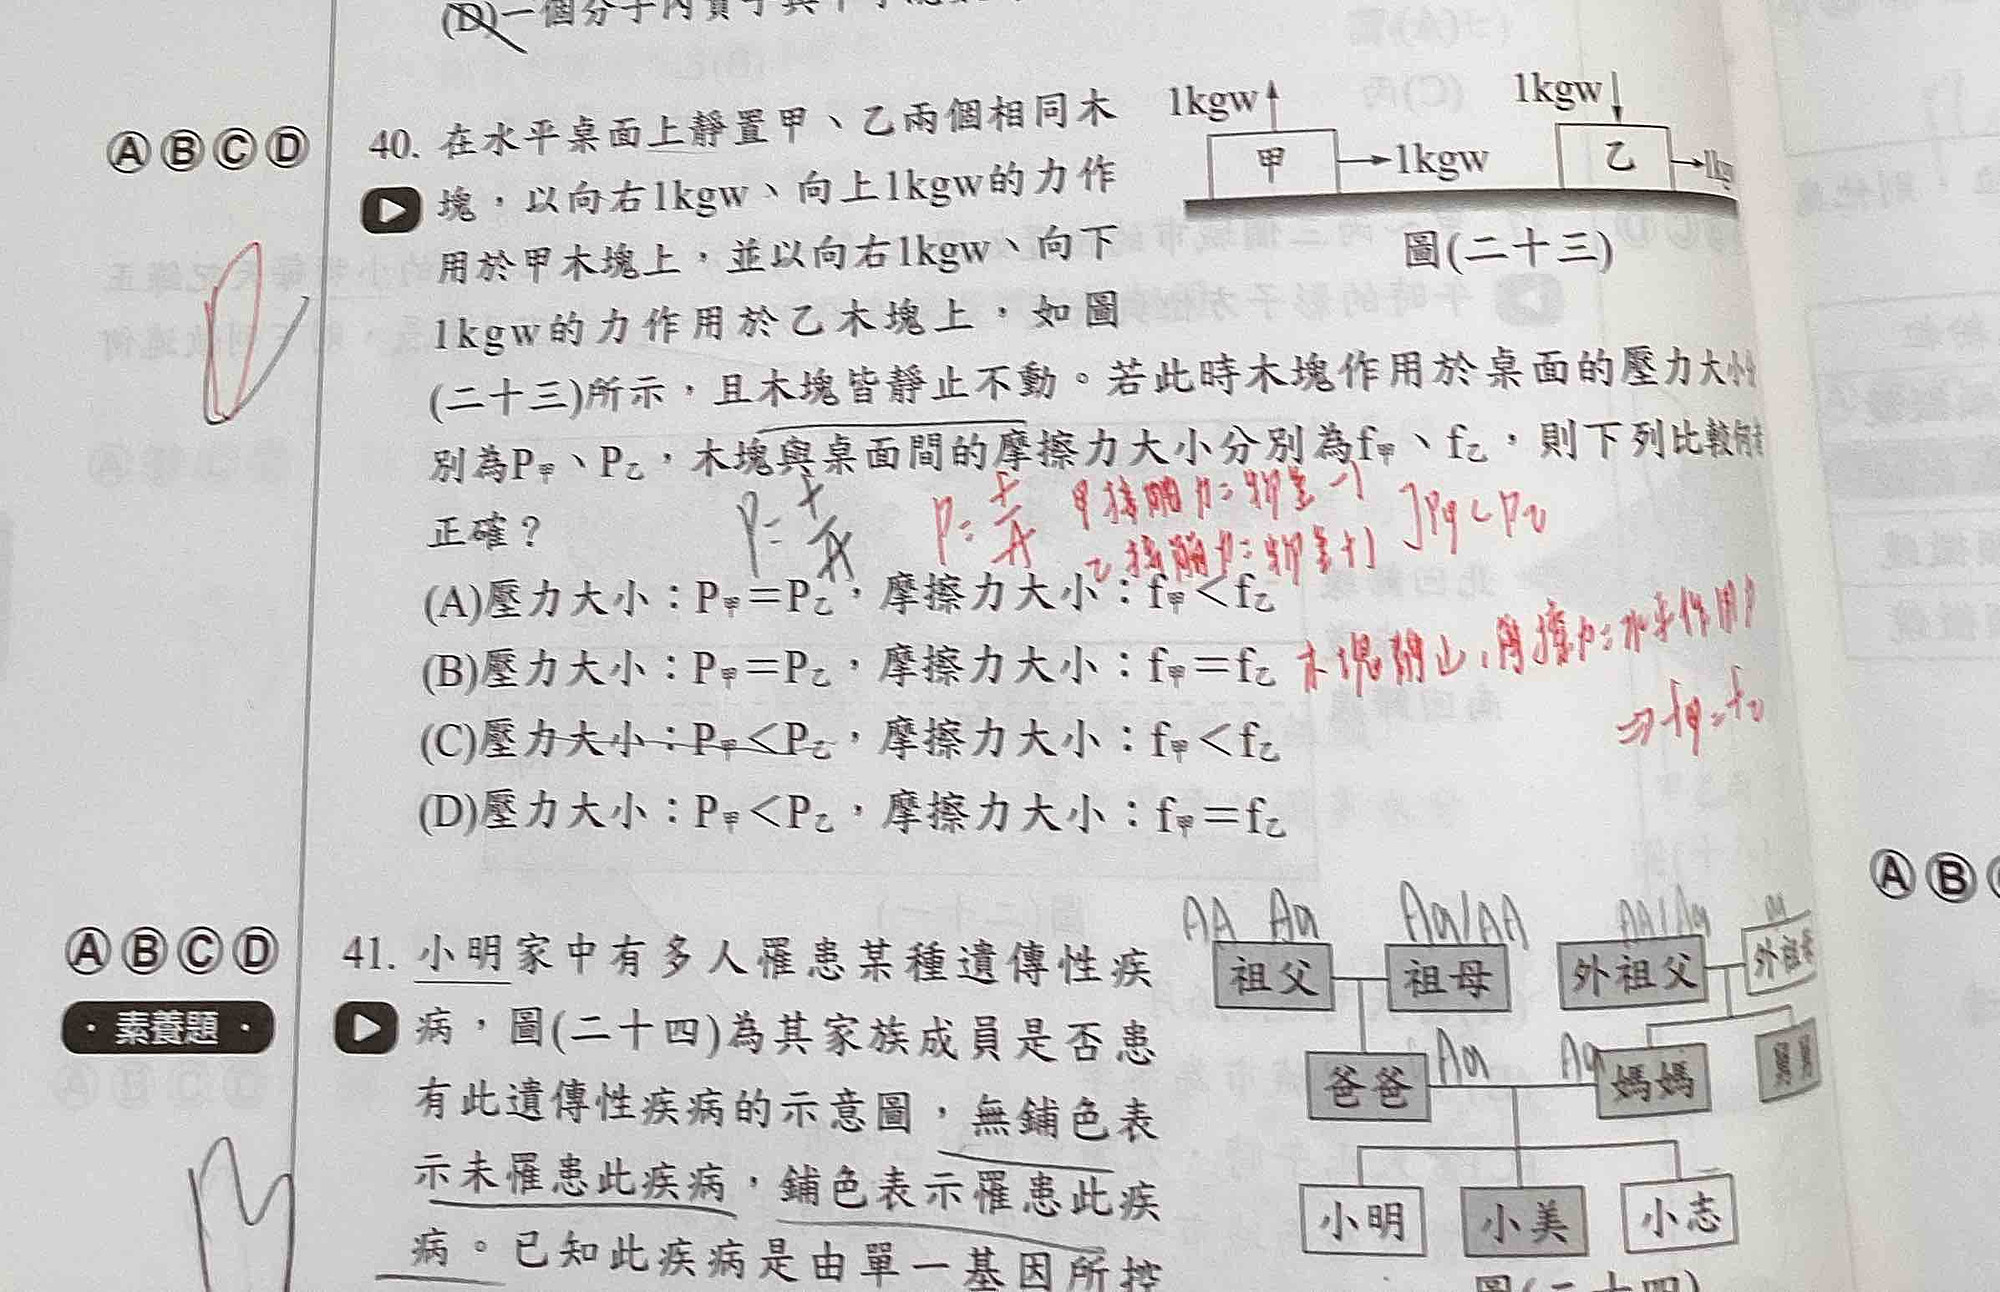 (D)一個分子內質子與
ⒶⒷⒸⒹ
40. 在水平桌面上靜置甲、乙兩個相同木
塊，以向右1kgw、向上1kgw的力作
用於甲木塊上，並以向右1kgw、向下
1kgw的力作用於乙木塊上，如圖
(二十三)所示，且木塊皆靜止不動。若此時木塊作用於桌面的壓力大小分
別為P甲、P乙，木塊與桌面間的摩擦力大小分別為f甲、f乙，則下列比較何者
正確？
1kgw
甲
1kgw
1kgw
乙
圖(二十三)
P=F/A
P=F/A
甲接觸力=物重-1
乙接觸力=物重+1
]P甲<P乙
(A)壓力大小：P甲＝P乙，摩擦力大小：f甲＜f乙
(B)壓力大小：P甲＝P乙，摩擦力大小：f甲＝f乙
木塊靜止，摩擦力=水平作用力
⇒f甲=f乙
(C)壓力大小：P甲＜P乙，摩擦力大小：f甲＜f乙
(D)壓力大小：P甲＜P乙，摩擦力大小：f甲＝f乙
ⒶⒷ
ⒶⒷⒸⒹ
·素養題·
41. 小明家中有多人罹患某種遺傳性疾
病，圖(二十四)為其家族成員是否患
有此遺傳性疾病的示意圖，無鋪色表
示未罹患此疾病，鋪色表示罹患此疾
病。已知此疾病是由單一基因所控
AA Aa
Aa/AA
AA/Aa
aa
祖父
祖母
外祖父
外祖母
Aa
Aa
爸爸
媽媽
舅舅
小明
小美
小志
圖(二十四)